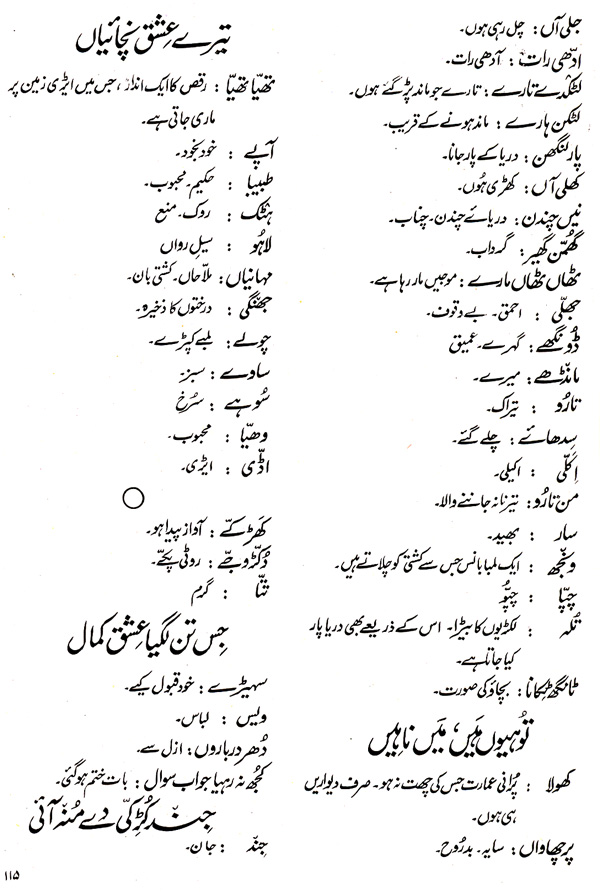 جلی آں: چل رہی ہوں۔
ادّھی رات: آدھی رات۔
لٹکدے تارے: تارے جو ماند پڑ گئے ہوں۔
لٹکن ہارے: ماند ہونے کے قریب۔
پار لنگھن: دریا کے پار جانا۔
کھلی آں: کھڑی ہُوں۔
نیں چندن: دریائے چندن۔ چناب۔
گھُمّن گھیر: گرداب۔
ٹھاں ٹھاں مارے: موجیں مار رہا ہے۔
جھلّی : احمق۔ بے وقوف۔
ڈونگھے: گہرے۔ عمیق
مانڈھے: میرے۔
تارُو : تیراک۔
سِدھائے: چلے گئے۔
اِکلّی : اکیلی۔
من تارُو: تیرنا نہ جاننے والا۔
سار : بھید۔
ونجھ : ایک لمبا بانس جس سے کشتی کو چلاتے ہیں۔
چپّا : چپُّو
تُلہ : لکڑیوں کا بیڑا۔ اس کے ذریعے بھی دریا پار
کیا جاتا ہے۔
ٹانگھ ٹِکانا: بچاؤ کی صورت۔
توُہیوں ہَیں، مَیں ناہیں
کھولا : پُرانی عمارت جس کی چھت نہ ہو۔ صرف دیواریں
ہی ہوں۔
پرچھاواں: سایہ۔ بدرُوح۔
تیرے عِشق نچائیاں
تھیّا تھیّا: رقص کا ایک انداز، جس میں ایڑی زمین پر
ماری جاتی ہے۔
آپے : خود بخود۔
طبیبا : حکیم۔ محبوب۔
ہٹک : روک۔ منع
لاہُو : سیلِ رواں
مہانیاں: ملّاحاں۔ کشتی بان۔
جھنگی : درختوں کا ذخیرہ۔
چولے : لمبے کپڑے۔
ساوے : سبز۔
سُوہے : سُرخ
وھیّا : محبوب۔
اڈّی : ایڑی۔
کھَڑکے : آواز پیدا ہو۔
دُکڑ وجے: روٹی پکّے۔
تتّا : گرم
جس تن لگیا عِشق کمال
سہیڑے: خود قبول کیے۔
ویس : لباس۔
دُھر درباروں: ازل سے۔
کُجھ نہ رہیا جواب سوال: بات ختم ہو گئی۔
جِند کُڑِکّی دے مُنہ آئی
جِند : جان۔
۱۱۵